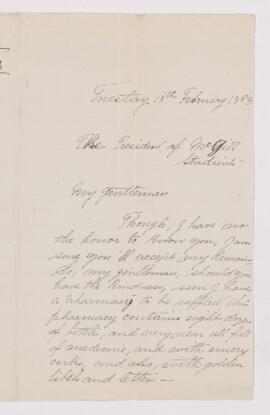 Tuesday, 13th February 1883
The President of McGill
Students
My gentleman
Though, I have no
the honor to know you, I am
sure you'll accept my
my gentleman, should you
have the kindness, seen I have
a pharmacy to be raffled, this
pharmacy contains eight dozen
of bottle, and very near all full
of medecine, and with emery
corks and also, with golden
libels and letter —